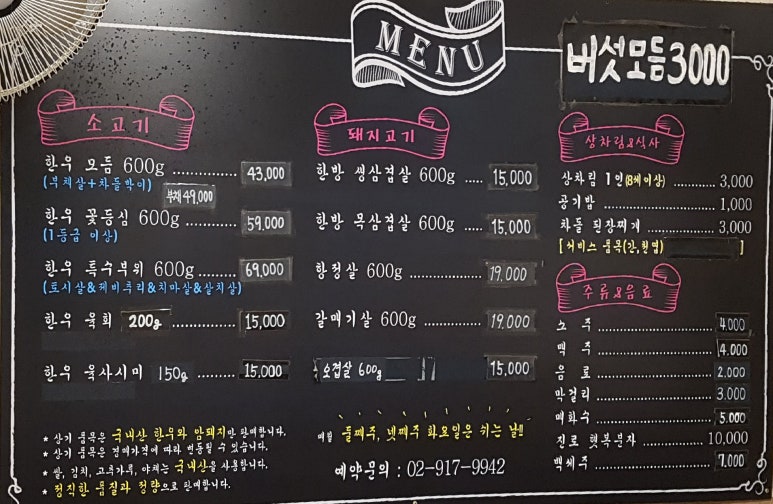 MENU
버섯모듬 3000
소고기
한우 모듬 600g .............. 43,000
(부채살+차돌박이)
부채 49,000
한우 꽃등심 600g ......... 59,000
(1등급 이상)
한우 특수부위 600g ........ 69,000
(토시살&제비추리&치마살&살치살)
한우 육회 200g .............. 15,000
한우 육사시미 150g ......... 15,000
* 상기 품목은 국내산 한우와 암돼지만 판매합니다.
* 상기 품목은 경매가격에 따라 변동될 수 있습니다.
* 쌀, 김치, 고추가루, 야채는 국내산을 사용합니다.
* 정직한 품질과 정량으로 판매합니다.
돼지고기
한방 생삼겹살 600g ..... 15,000
한방 목삼겹살 600g ..... 15,000
항정살 600g ................. 19,000
갈매기살 600g .............. 19,000
오겹살 600g 15,000
매월 둘째주, 넷째주 화요일은 쉬는 날!!
예약문의 : 02-917-9942
상차림&식사
상차림 1인(8세이상) .......... 3,000
공기밥 ............................ 1,000
차돌 된장찌개 .................. 3,000
[서비스 품목(간,천엽) ]
주류&음료
소주 ........................... 4.000
맥주 ........................... 4.000
음료 ........................... 2.000
막걸리 ........................ 3.000
매화수 ........................ 5.000
진로 햇복분자 ............... 10.000
백세주 ........................ 7.000